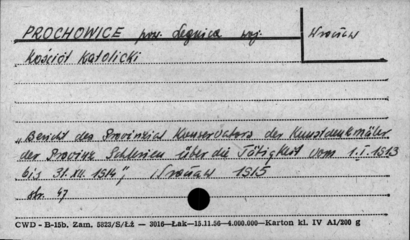 PROCHOWICE pow. Legnica woj. Wrocław
Kościół Katolicki
„Bericht des Provinzial Konservators der Kunstdenkmäler
der Provinz Schlesien über die Tätigkeit vom 1.I.1913
bis 31.XII.1914”, Wrocław 1915
str. 47
CWD - B-15b. Zam. 5823/S/ŁŻ — 3016—Łak—15.11.56—4.000.000—Karton kl. IV A1/200 g